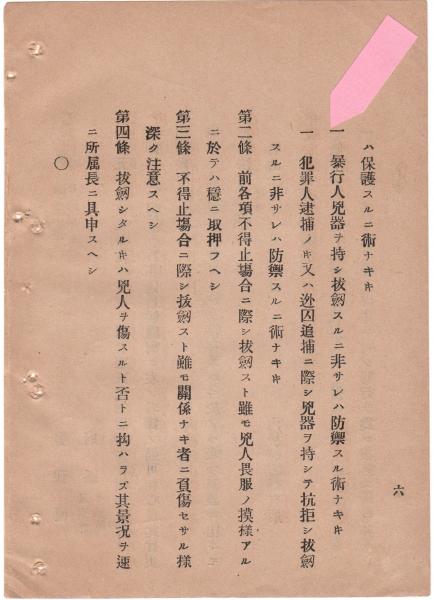 ハ保護スルニ術ナキ𪜈
一 暴行人兇器ヲ持シ拔劔スルニ非サレハ防禦スル術ナキ𪜈
一 犯罪人逮捕ノ𪜈又ハ迯囚追捕ニ際シ兇器ヲ持シテ抗拒シ拔劔
スルニ非サレハ防禦スルニ術ナキ𪜈
第二條 前各項不得止塲合ニ際シ拔劔スト雖モ兇人畏服ノ摸樣アル
ニ於テハ穩ニ取押フヘシ
第三條 不得止塲合ニ際シ拔劔スト雖モ關係ナキ者ニ負傷セサル樣
深ク注意スヘシ
第四條 拔劔シタル𪜈ハ兇人ヲ傷スルト否トニ拘ハラズ其景況ヲ速
ニ所属長ニ具申スヘシ
○
六